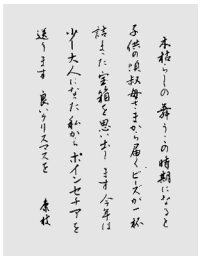 木枯らしの 舞うこの時期になると
子供の頃叔母さまから届くビーズが一杯
詰まった宝箱を思い出します 今年は
少し大人になった私からポインセチアを
送ります 良いクリスマスを
康枝